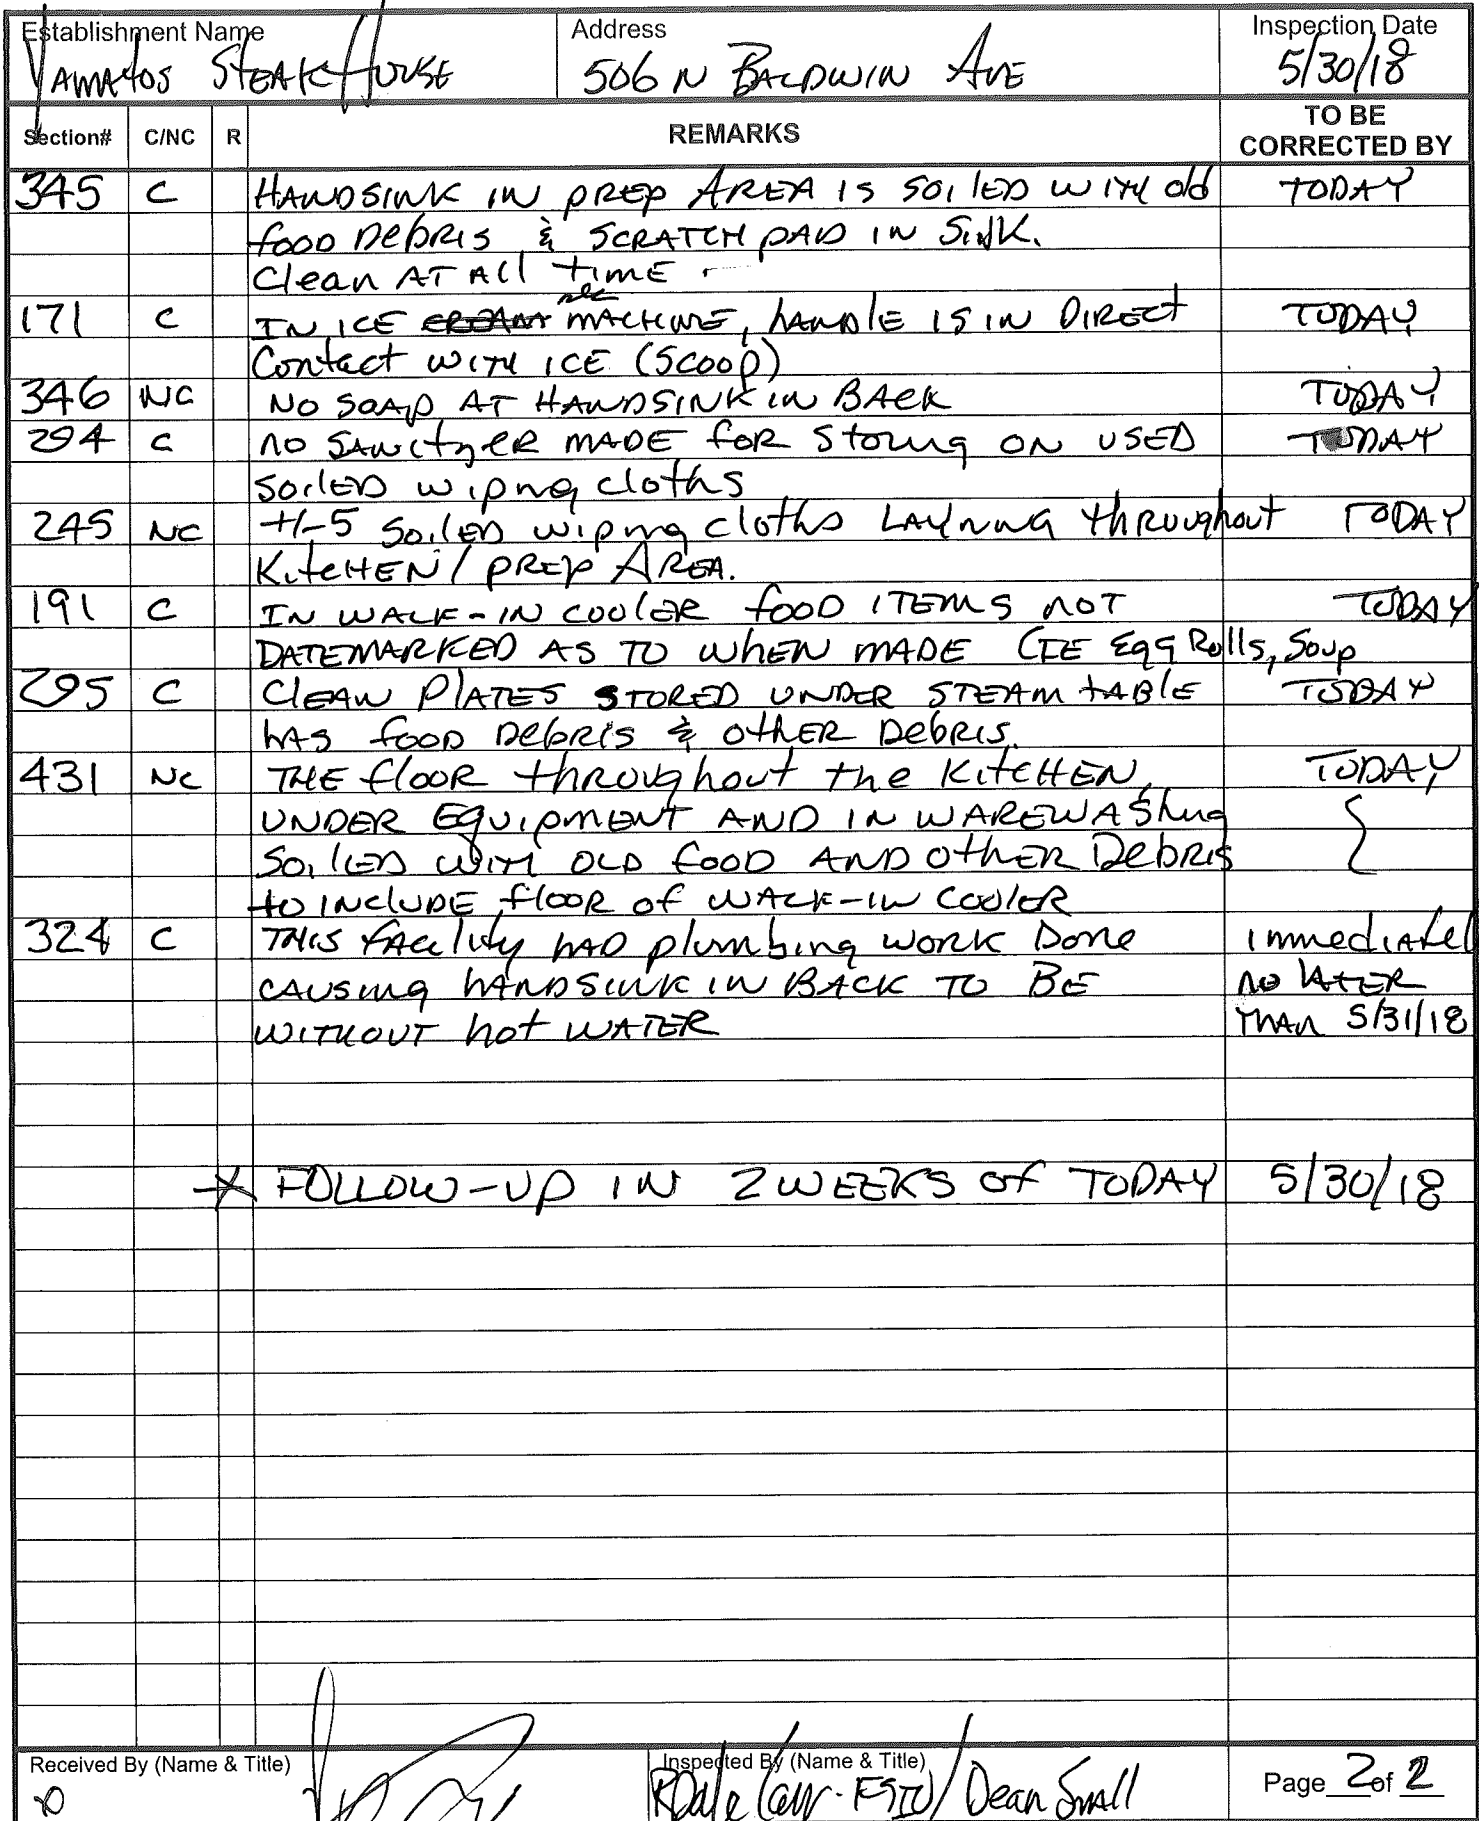 Establishment Name
Address
Inspection Date
Yamatos Steak House
506 N Baldwin Ave
5/30/18
Section# C/NC R REMARKS TO BE CORRECTED BY
345 C HANDSINK IN PREP AREA IS SOILED WITH old TODAY
food Debris & SCRATCH PAD IN SINK.
Clean AT All time
171 C IN ICE MACHINE, handle IS IN DIRECT TODAY
Contact WITH ICE (Scoop)
346 NC NO SOAP AT HANDSINK IN BACK TODAY
294 C NO SANITZER MADE for Storing ON USED TODAY
SOILED wiping cloths
245 NC +/-5 Soiled wiping cloths LAYNING throughout TODAY
KITCHEN / PREP AREA.
191 C IN WALK-IN COOLER food ITEMS NOT TODAY
DATEMARKED AS TO WHEN MADE (IE Egg Rolls, Soup
295 C CLEAN PLATES STORED UNDER STEAM TABLE TODAY
HAS food Debris & OTHER Debris.
431 NC THE floor throughout the KITCHEN, TODAY
UNDER EQUIPMENT AND IN WAREWASHING
SOILED WITH OLD food AND OTHER Debris
to INCLUDE floor of WALK-IN COOLER
324 C THIS facility HAD plumbing WORK Done immediatel
CAUSING HANDSINK IN BACK TO BE no LATER
WITHOUT hot WATER THAN 5/31/18
FOLLOW-UP IN 2 WEEKS of TODAY 5/30/18
Received By (Name & Title)
Inspected By (Name & Title)
Dean Small
Page 2 of 2